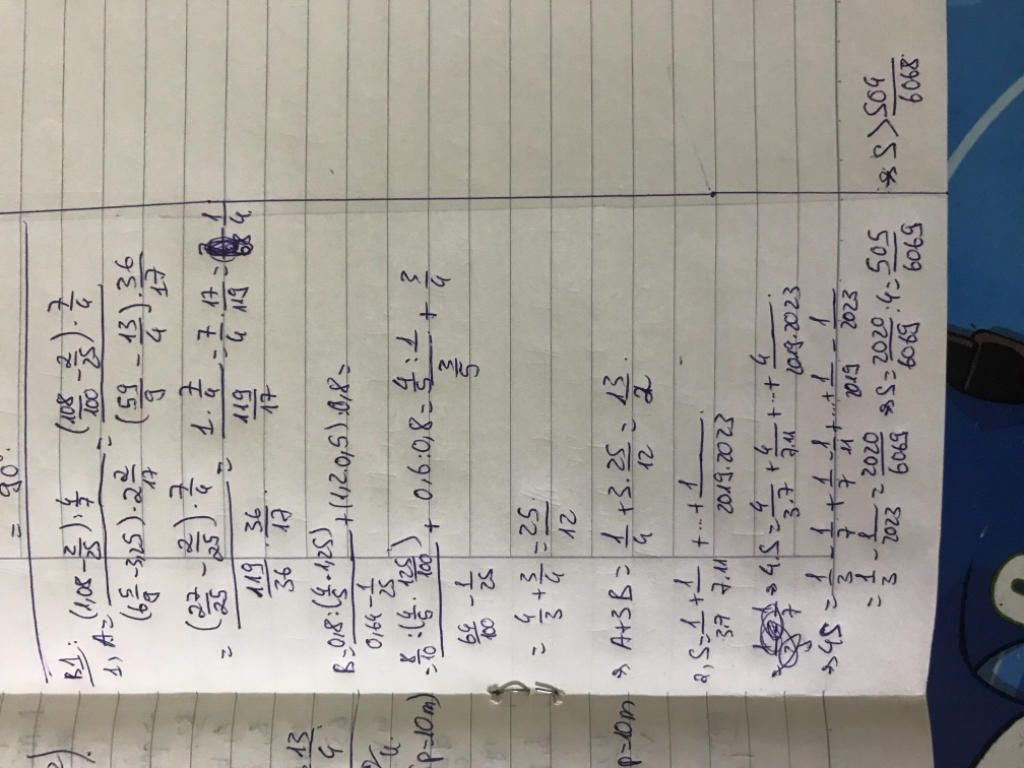 = 90°.
B1: 1, A = ((1,08 - 2/25) : 4/7) / ((6 5/9 - 3,25) . 2 2/17) = ((108/100 - 2/25) . 7/4) / ((59/9 - 13/4) . 36/17)
= ((27/25 - 2/25) . 7/4) / (119/36 . 36/17) = (1 . 7/4) / (119/17) = 7/4 . 17/119 = 1/4
B = (0,8 : (4/5 . 1,25)) / (0,64 - 1/25) + (1,2.0,5) : 0,8 =
= (8/10 : (4/5 . 125/100)) / (64/100 - 1/25) + 0,6 : 0,8 = (4/5 : 1) / (3/5) + 3/4
= 4/3 + 3/4 = 25/12
⇒ A + 3B = 1/4 + 3 . 25/12 = 13/2
2, S = 1/3.7 + 1/7.11 + ... + 1/2019.2023
⇒ 4S = 4/3.7 + 4/7.11 + ... + 4/2019.2023
⇒ 4S = 1/3 - 1/7 + 1/7 - 1/11 + ... + 1/2019 - 1/2023
= 1/3 - 1/2023 = 2020/6069 ⇒ S = 2020/6069 : 4 = 505/6069
⇒ S > 504/6068.
13/4
(p=10m)
p=10m